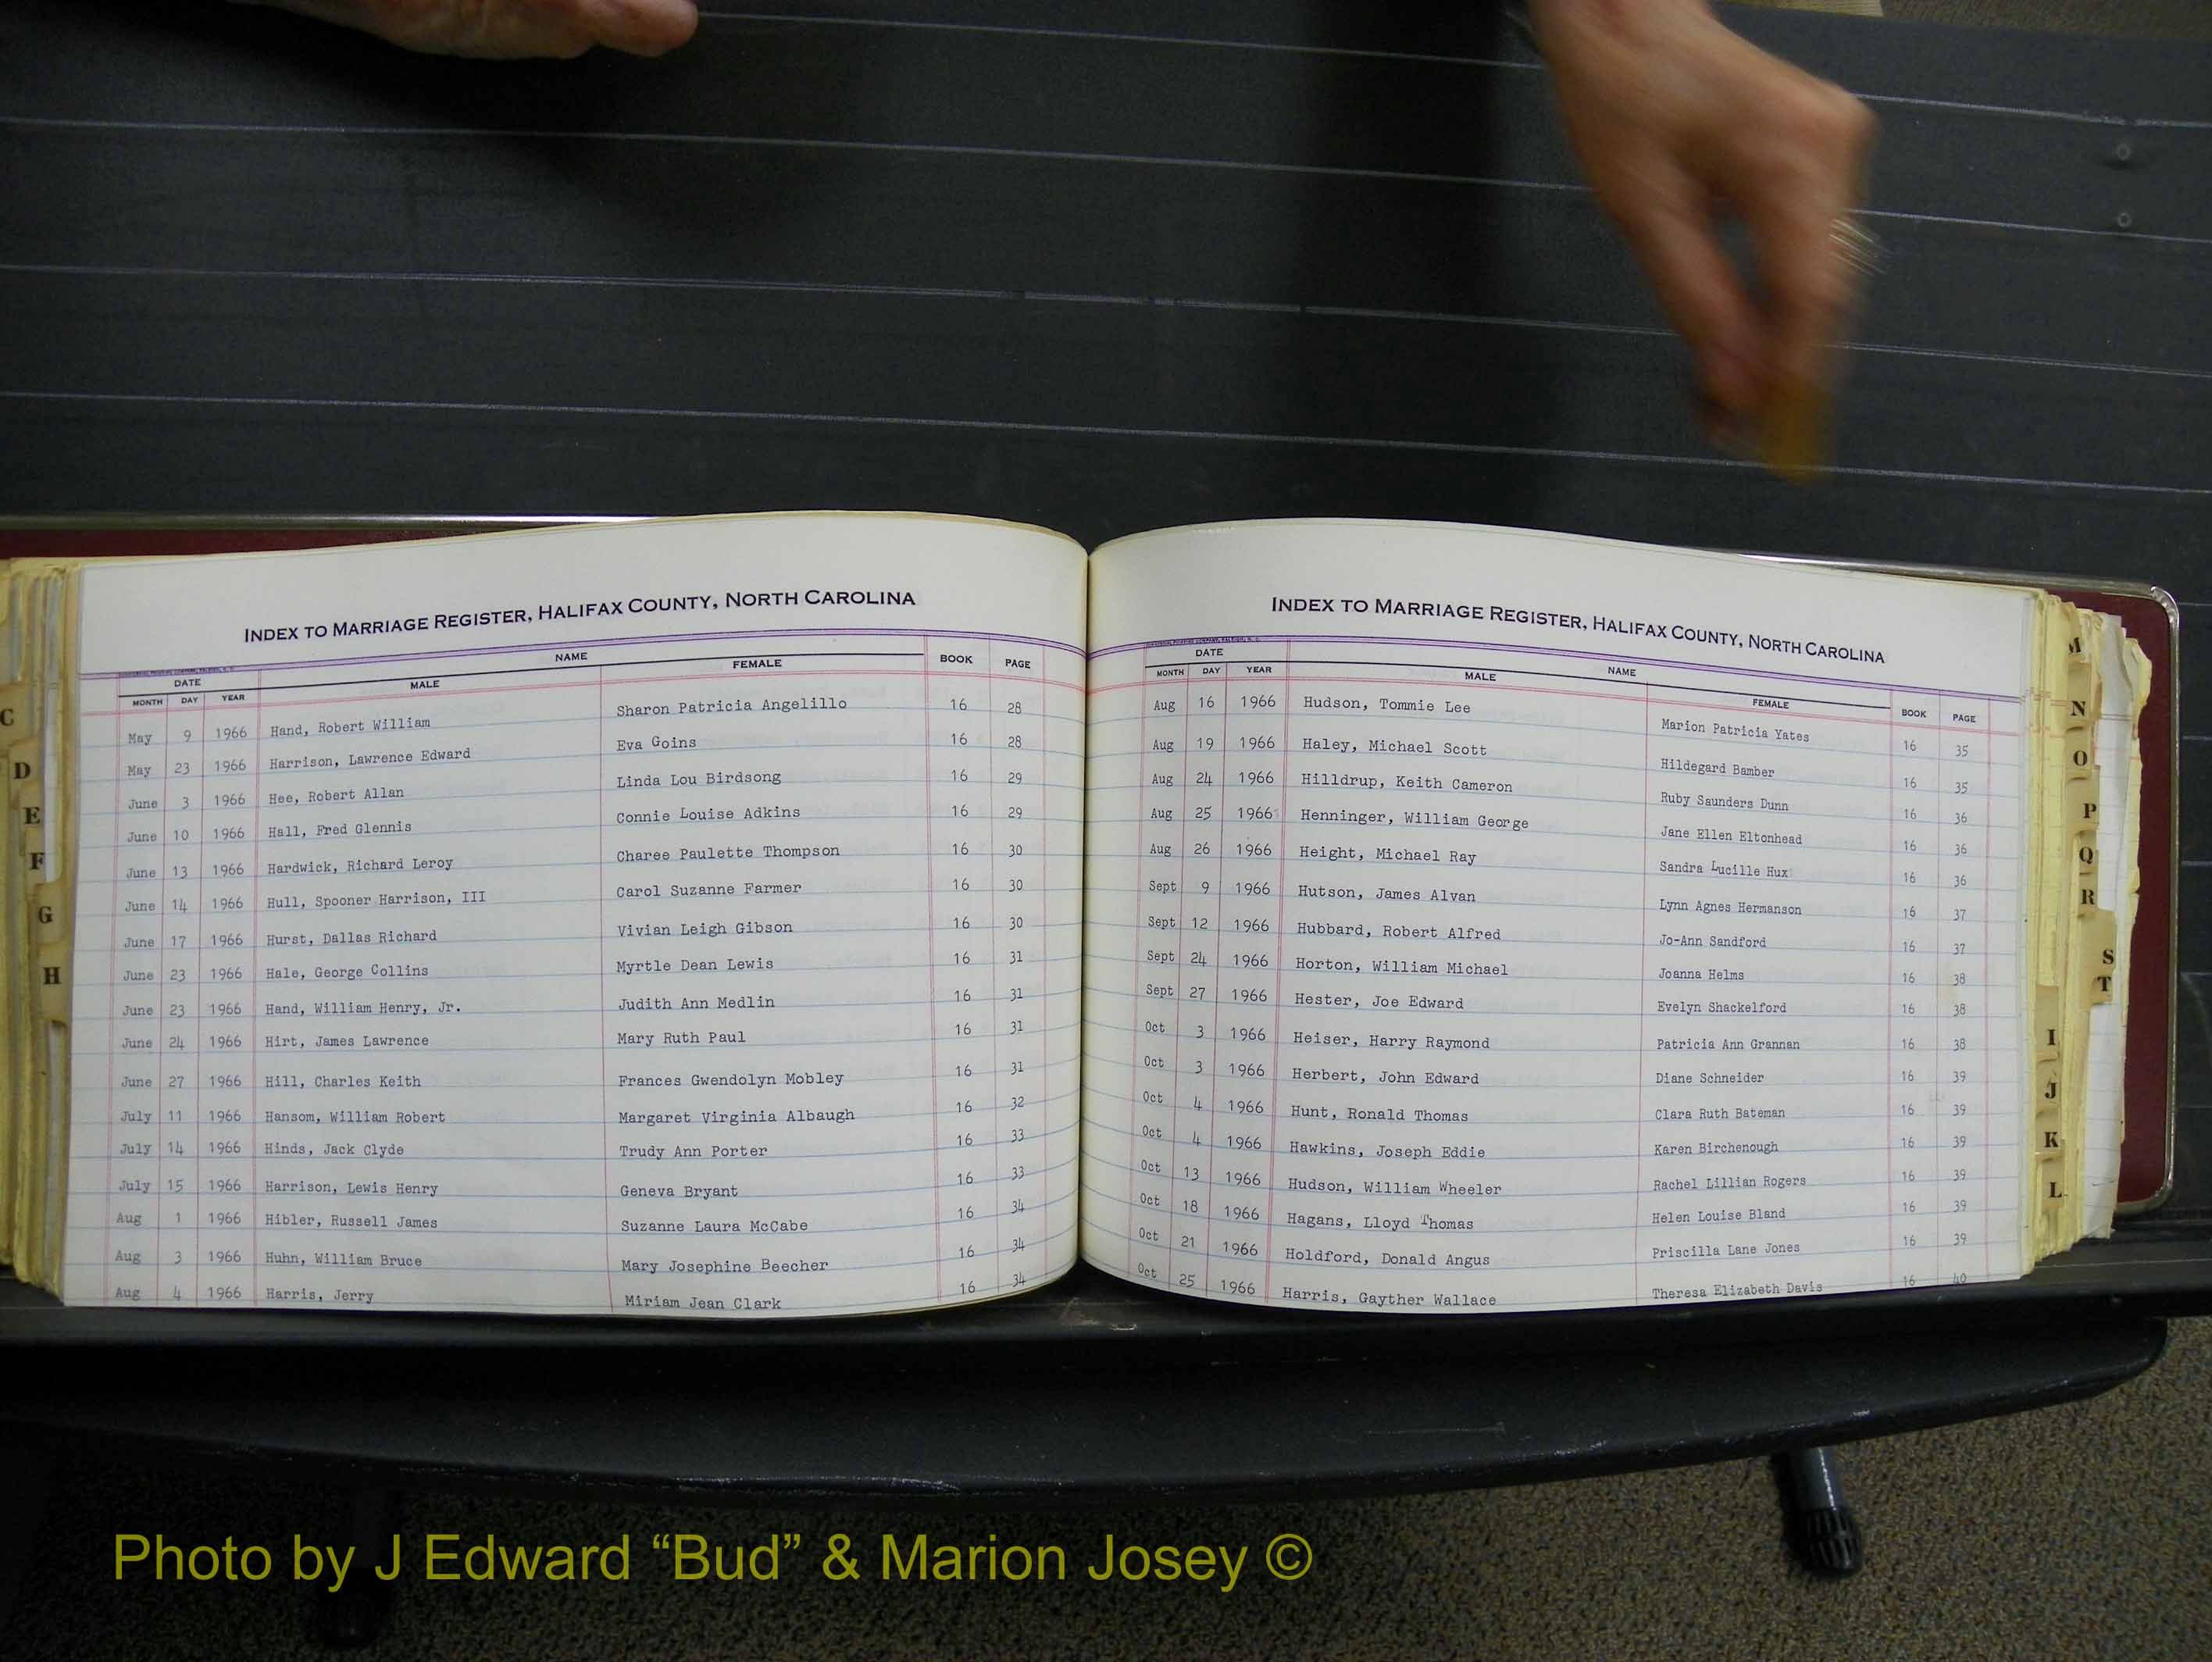 INDEX TO MARRIAGE REGISTER, HALIFAX COUNTY, NORTH CAROLINA
DATE NAME BOOK PAGE
MONTH DAY YEAR MALE FEMALE
May 9 1966 Hand, Robert William Sharon Patricia Angelillo 16 28
May 23 1966 Harrison, Lawrence Edward Eva Goins 16 28
June 3 1966 Hee, Robert Allan Linda Lou Birdsong 16 29
June 10 1966 Hall, Fred Glennis Connie Louise Adkins 16 29
June 13 1966 Hardwick, Richard Leroy Charee Paulette Thompson 16 30
June 14 1966 Hull, Spooner Harrison, III Carol Suzanne Farmer 16 30
June 17 1966 Hurst, Dallas Richard Vivian Leigh Gibson 16 30
June 23 1966 Hale, George Collins Myrtle Dean Lewis 16 31
June 23 1966 Hand, William Henry, Jr. Judith Ann Medlin 16 31
June 24 1966 Hirt, James Lawrence Mary Ruth Paul 16 31
June 27 1966 Hill, Charles Keith Frances Gwendolyn Mobley 16 31
July 11 1966 Hansom, William Robert Margaret Virginia Albaugh 16 32
July 14 1966 Hinds, Jack Clyde Trudy Ann Porter 16 33
July 15 1966 Harrison, Lewis Henry Geneva Bryant 16 33
Aug 1 1966 Hibler, Russell James Suzanne Laura McCabe 16 34
Aug 3 1966 Huhn, William Bruce Mary Josephine Beecher 16 34
Aug 4 1966 Harris, Jerry Miriam Jean Clark 16 34
C
D
E
F
G
H
INDEX TO MARRIAGE REGISTER, HALIFAX COUNTY, NORTH CAROLINA
DATE NAME
MONTH DAY YEAR MALE FEMALE BOOK PAGE
Aug 16 1966 Hudson, Tommie Lee Marion Patricia Yates 16 35
Aug 19 1966 Haley, Michael Scott Hildegard Bamber 16 35
Aug 24 1966 Hilldrup, Keith Cameron Ruby Saunders Dunn 16 36
Aug 25 1966 Henninger, William George Jane Ellen Eltonhead 16 36
Aug 26 1966 Height, Michael Ray Sandra Lucille Hux 16 36
Sept 9 1966 Hutson, James Alvan Lynn Agnes Hermanson 16 37
Sept 12 1966 Hubbard, Robert Alfred Jo-Ann Sandford 16 37
Sept 24 1966 Horton, William Michael Joanna Helms 16 38
Sept 27 1966 Hester, Joe Edward Evelyn Shackelford 16 38
Oct 3 1966 Heiser, Harry Raymond Patricia Ann Grannan 16 38
Oct 3 1966 Herbert, John Edward Diane Schneider 16 39
Oct 4 1966 Hunt, Ronald Thomas Clara Ruth Bateman 16 39
Oct 4 1966 Hawkins, Joseph Eddie Karen Birchenough 16 39
Oct 13 1966 Hudson, William Wheeler Rachel Lillian Rogers 16 39
Oct 18 1966 Hagans, Lloyd Thomas Helen Louise Bland 16 39
Oct 21 1966 Holdford, Donald Angus Priscilla Lane Jones 16 39
Oct 25 1966 Harris, Gayther Wallace Theresa Elizabeth Davis 16 40
M
N
O
P
Q
R
S
T
I
J
K
L
Photo by J Edward “Bud” & Marion Josey ©